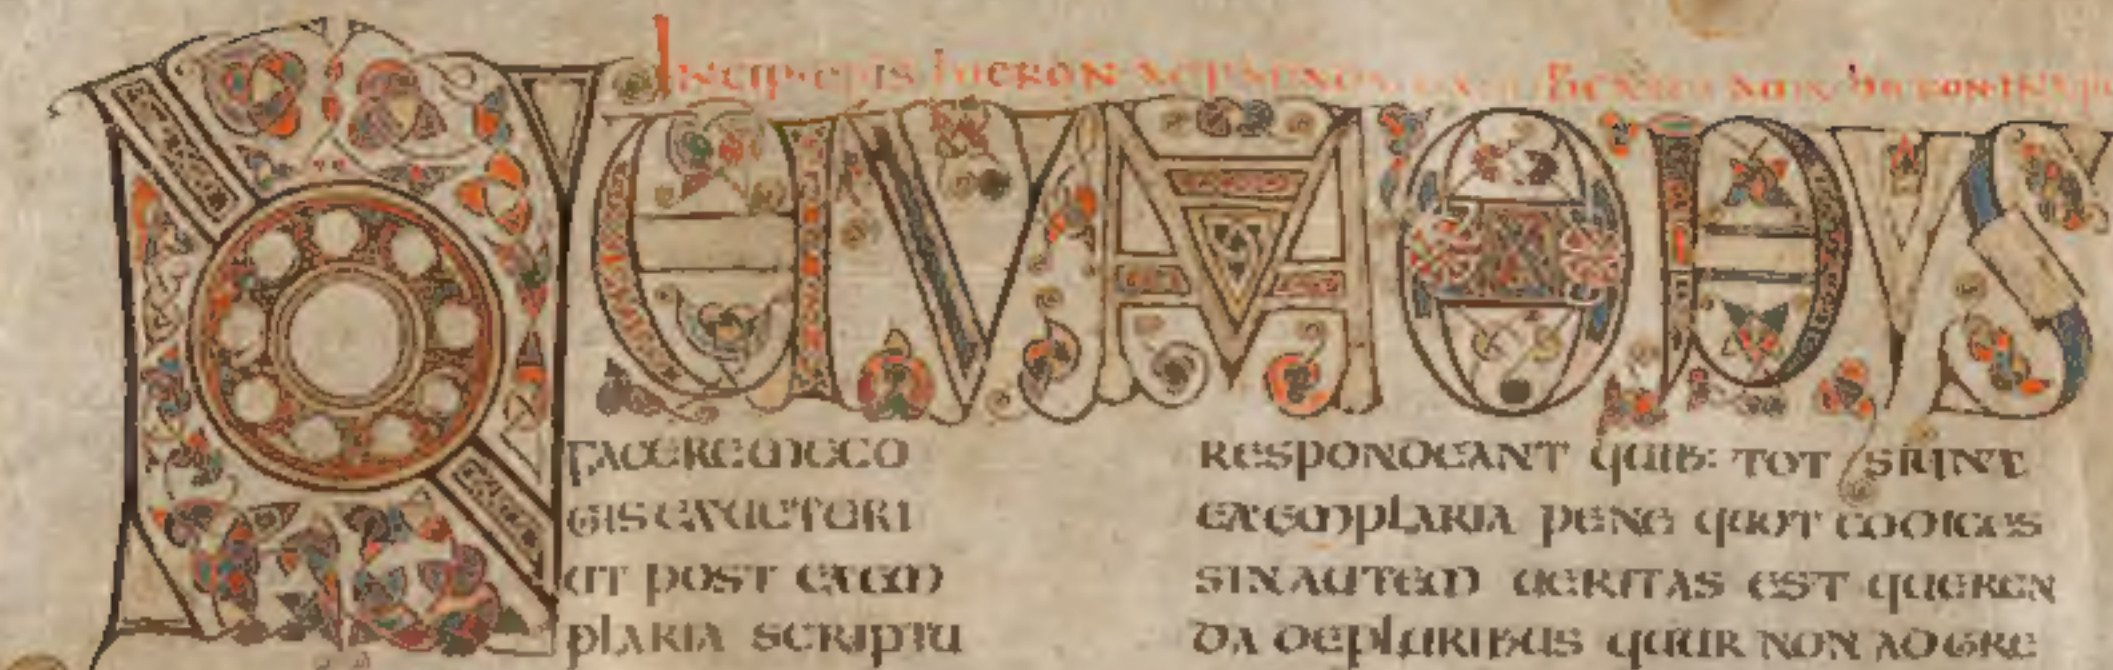 INCIP EPIS HIERON
NOUVM OPVS
FACERE ME CO
GIS EX UETERI
UT POST EXEM
PLARIA SCRIPTU
RESPONDEANT QUIB: TOT SUNT
EXEMPLARIA PENE QUOT CODICES
SIN AUTEM UERITAS EST QUEREN
DA DE PLURIBUS QUUR NON AD GRE